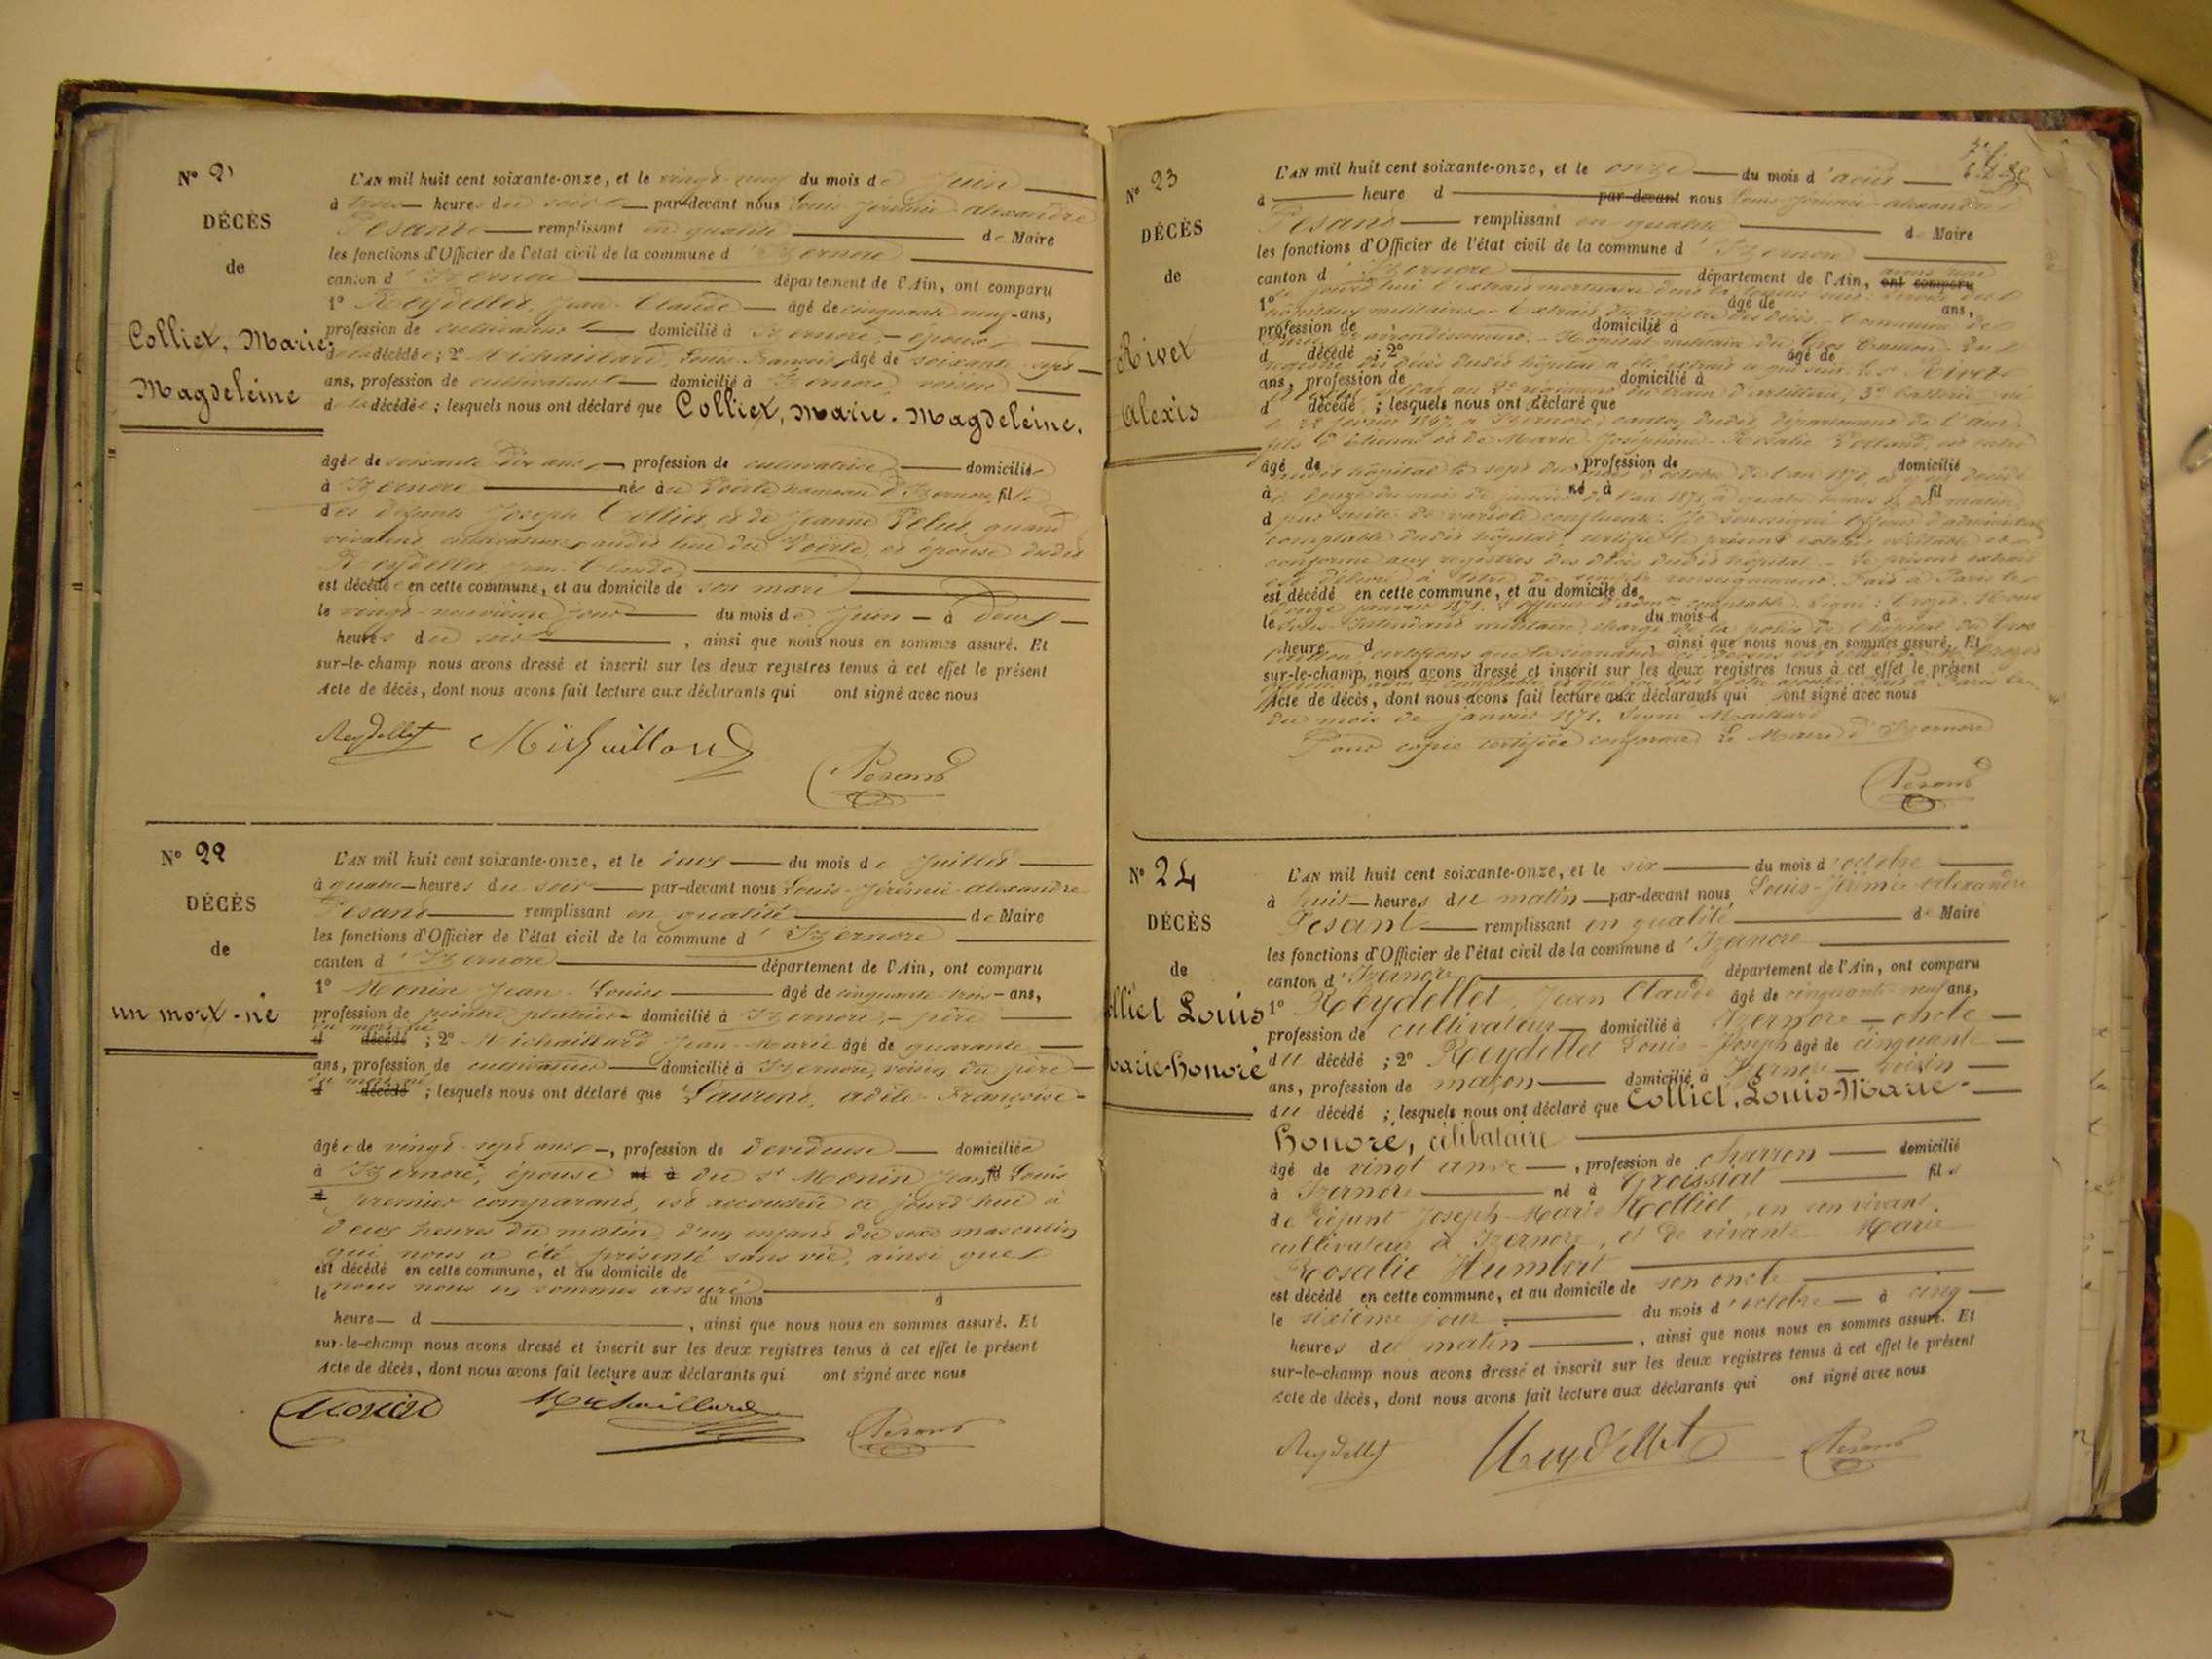 N° 21
DÉCÈS
de
Colliet, Marie
Magdeleine
L'AN mil huit cent soixante-onze, et le vingt-neuf du mois de Juin
à trois heures du soir par-devant nous Louis Jérémie Alexandre
Pesant remplissant en qualité de Maire
les fonctions d'Officier de l'état civil de la commune d'Izernore
canton d'Izernore département de l'Ain, ont comparu
1° Reydellet, Jean-Claude âgé de cinquante neuf ans,
profession de cultivateur domicilié à Izernore, époux
de la décédée; 2° Michaillard, Louis François âgé de soixante-sept
ans, profession de cultivateur domicilié à Izernore voisin
de la décédée; lesquels nous ont déclaré que Colliet, Marie-Magdeleine,
âgée de soixante-dix ans, profession de cultivatrice domiciliée
à Izernore née à hameau d'Izernore, fille
des défunts Joseph Colliet et de Jeanne quand
vivaient cultivateurs audit lieu du et épouse dudit
Reydellet, Jean-Claude,
est décédée en cette commune, et au domicile de son mari
le vingt-neuvième jour du mois de Juin à deux
heures du soir, ainsi que nous nous en sommes assuré. Et
sur-le-champ nous avons dressé et inscrit sur les deux registres tenus à cet effet le présent
Acte de décès, dont nous avons fait lecture aux déclarants qui ont signé avec nous
Reydellet Michaillard Pesant
N° 22
DÉCÈS
de
un mort-né
L'AN mil huit cent soixante-onze, et le deux du mois de Juillet
à quatre heures du soir par-devant nous Louis-Jérémie-Alexandre
Pesant remplissant en qualité de Maire
les fonctions d'Officier de l'état civil de la commune d'Izernore
canton d'Izernore département de l'Ain, ont comparu
1° Monin Jean-Louis âgé de cinquante-trois ans,
profession de peintre plâtrier domicilié à Izernore, père
du mort-né
d décédé; 2° Michaillard Jean-Marie âgé de quarante
ans, profession de cultivateur domicilié à Izernore, voisin du père
du mort-né
d décédé; lesquels nous ont déclaré que Laurent, Adèle-Françoise
âgée de vingt-sept ans, profession de dévideuse domiciliée
à Izernore, épouse né à du Sr Monin Jean Louis
premier comparant, est accouchée ce jourd'hui à
deux heures du matin, d'un enfant du sexe masculin
qui nous a été présenté sans vie, ainsi que
est décédé en cette commune, et au domicile de
nous nous en sommes assuré
le du mois à
heure d, ainsi que nous nous en sommes assuré. Et
sur-le-champ nous avons dressé et inscrit sur les deux registres tenus à cet effet le présent
Acte de décès, dont nous avons fait lecture aux déclarants qui ont signé avec nous
Monin Michaillard Pesant
N° 23
DÉCÈS
de
Rivet
Alexis
L'AN mil huit cent soixante-onze, et le onze du mois d'août
à heure d par-devant nous Louis-Jérémie-Alexandre
Pesant remplissant en qualité de Maire
les fonctions d'Officier de l'état civil de la commune d'Izernore
canton d'Izernore département de l'Ain, ont comparu
1° âgé de ans,
hôpitaux militaires. Extrait du registre des décès. Commune de
profession de domicilié à
arrondissement. Hôpital militaire du Gros Caillou. Du
d décédé; 2° âgé de
registre des décès dudit hôpital a été extrait ce qui suit: Le Sr Rivet
ans, profession de domicilié à
train d'artillerie, 3e batterie, né
d décédé; lesquels nous ont déclaré que
le 22 février 1847, à Izernore, canton dudit, département de l'Ain,
fils d'Etienne et de Marie Joséphine Rosalie est entré
âgé de, profession de domicilié
audit hôpital le sept du mois d'octobre de l'an 1870, et y est décédé
à né à fil
le douze du mois de janvier de l'an 1871, à quatre heures du matin,
d par suite de variole confluente. Je soussigné Officier d'administration
comptable dudit hôpital, certifie le présent extrait véritable et
conforme aux registres des décès dudit hôpital. Le présent extrait
est délivré à titre de simple renseignement. Fait à Paris le
est décédé en cette commune, et au domicile de
douze janvier 1871. L'officier d'admon comptable. Signé: Nous
le du mois d à
Sous-Intendant militaire, chargé de la police de l'hôpital du Gros
heure d, ainsi que nous nous en sommes assuré. Et
Caillou, certifions que la signature
sur-le-champ, nous avons dressé et inscrit sur les deux registres tenus à cet effet le présent
Acte de décès, dont nous avons fait lecture aux déclarants qui ont signé avec nous
du mois de janvier 1871. Signé
Pour copie certifiée conforme Le Maire d'Izernore
Pesant
N° 24
DÉCÈS
de
lliet Louis
Marie-honoré
L'AN mil huit cent soixante-onze, et le six du mois d'octobre
à huit heures du matin par-devant nous Louis-Jérémie-Alexandre
Pesant remplissant en qualité de Maire
les fonctions d'Officier de l'état civil de la commune d'Izernore
canton d'Izernore département de l'Ain, ont comparu
1° Reydellet, Jean Claude âgé de cinquante neuf ans,
profession de cultivateur domicilié à Izernore oncle
du décédé; 2° Reydellet Louis-Joseph âgé de cinquante
ans, profession de maçon domicilié à Izernore voisin
du décédé; lesquels nous ont déclaré que Colliet, Louis-Marie-
honoré, célibataire
âgé de vingt ans, profession de charron domicilié
à Izernore né à Groissiat fils
de défunt Joseph-Marie Colliet, en son vivant
cultivateur à Izernore, et de vivante Marie
Rosalie Humbert
est décédé en cette commune, et au domicile de son oncle
le sixième jour du mois d'octobre à cinq
heures du matin, ainsi que nous nous en sommes assuré. Et
sur-le-champ nous avons dressé et inscrit sur les deux registres tenus à cet effet le présent
Acte de décès, dont nous avons fait lecture aux déclarants qui ont signé avec nous
Reydellet Reydellet Pesant